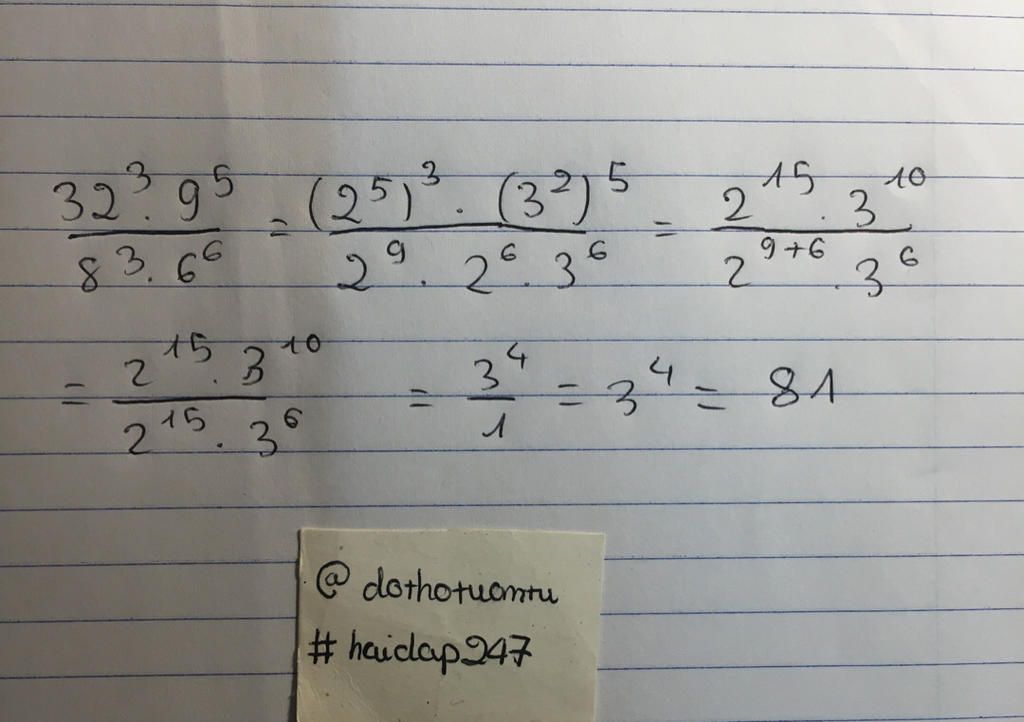 32³ · 9⁵ / 8³ · 6⁶ = (2⁵)³ · (3²)⁵ / 2⁹ · 2⁶ · 3⁶ = 2¹⁵ · 3¹⁰ / 2⁹⁺⁶ · 3⁶
= 2¹⁵ · 3¹⁰ / 2¹⁵ · 3⁶ = 3⁴ / 1 = 3⁴ = 81
@ dothotuomtu
# haidap247